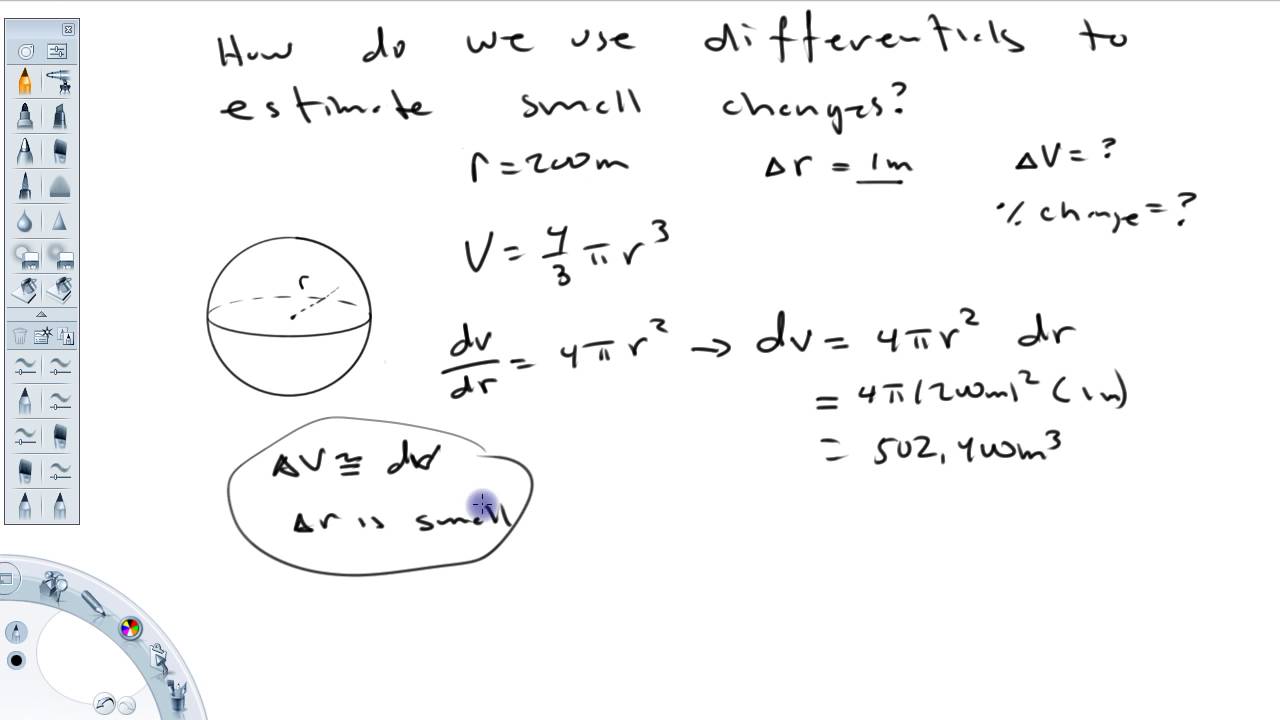 How do we use differentials to
estimate small changes?
r = 200m Δr = 1m ΔV = ?
% change = ?
V = 4/3 π r³
r
dv/dr = 4πr² → dv = 4πr² dr
= 4π(200m)² (1m)
= 502,400m³
ΔV ≅ dV
Δr is small